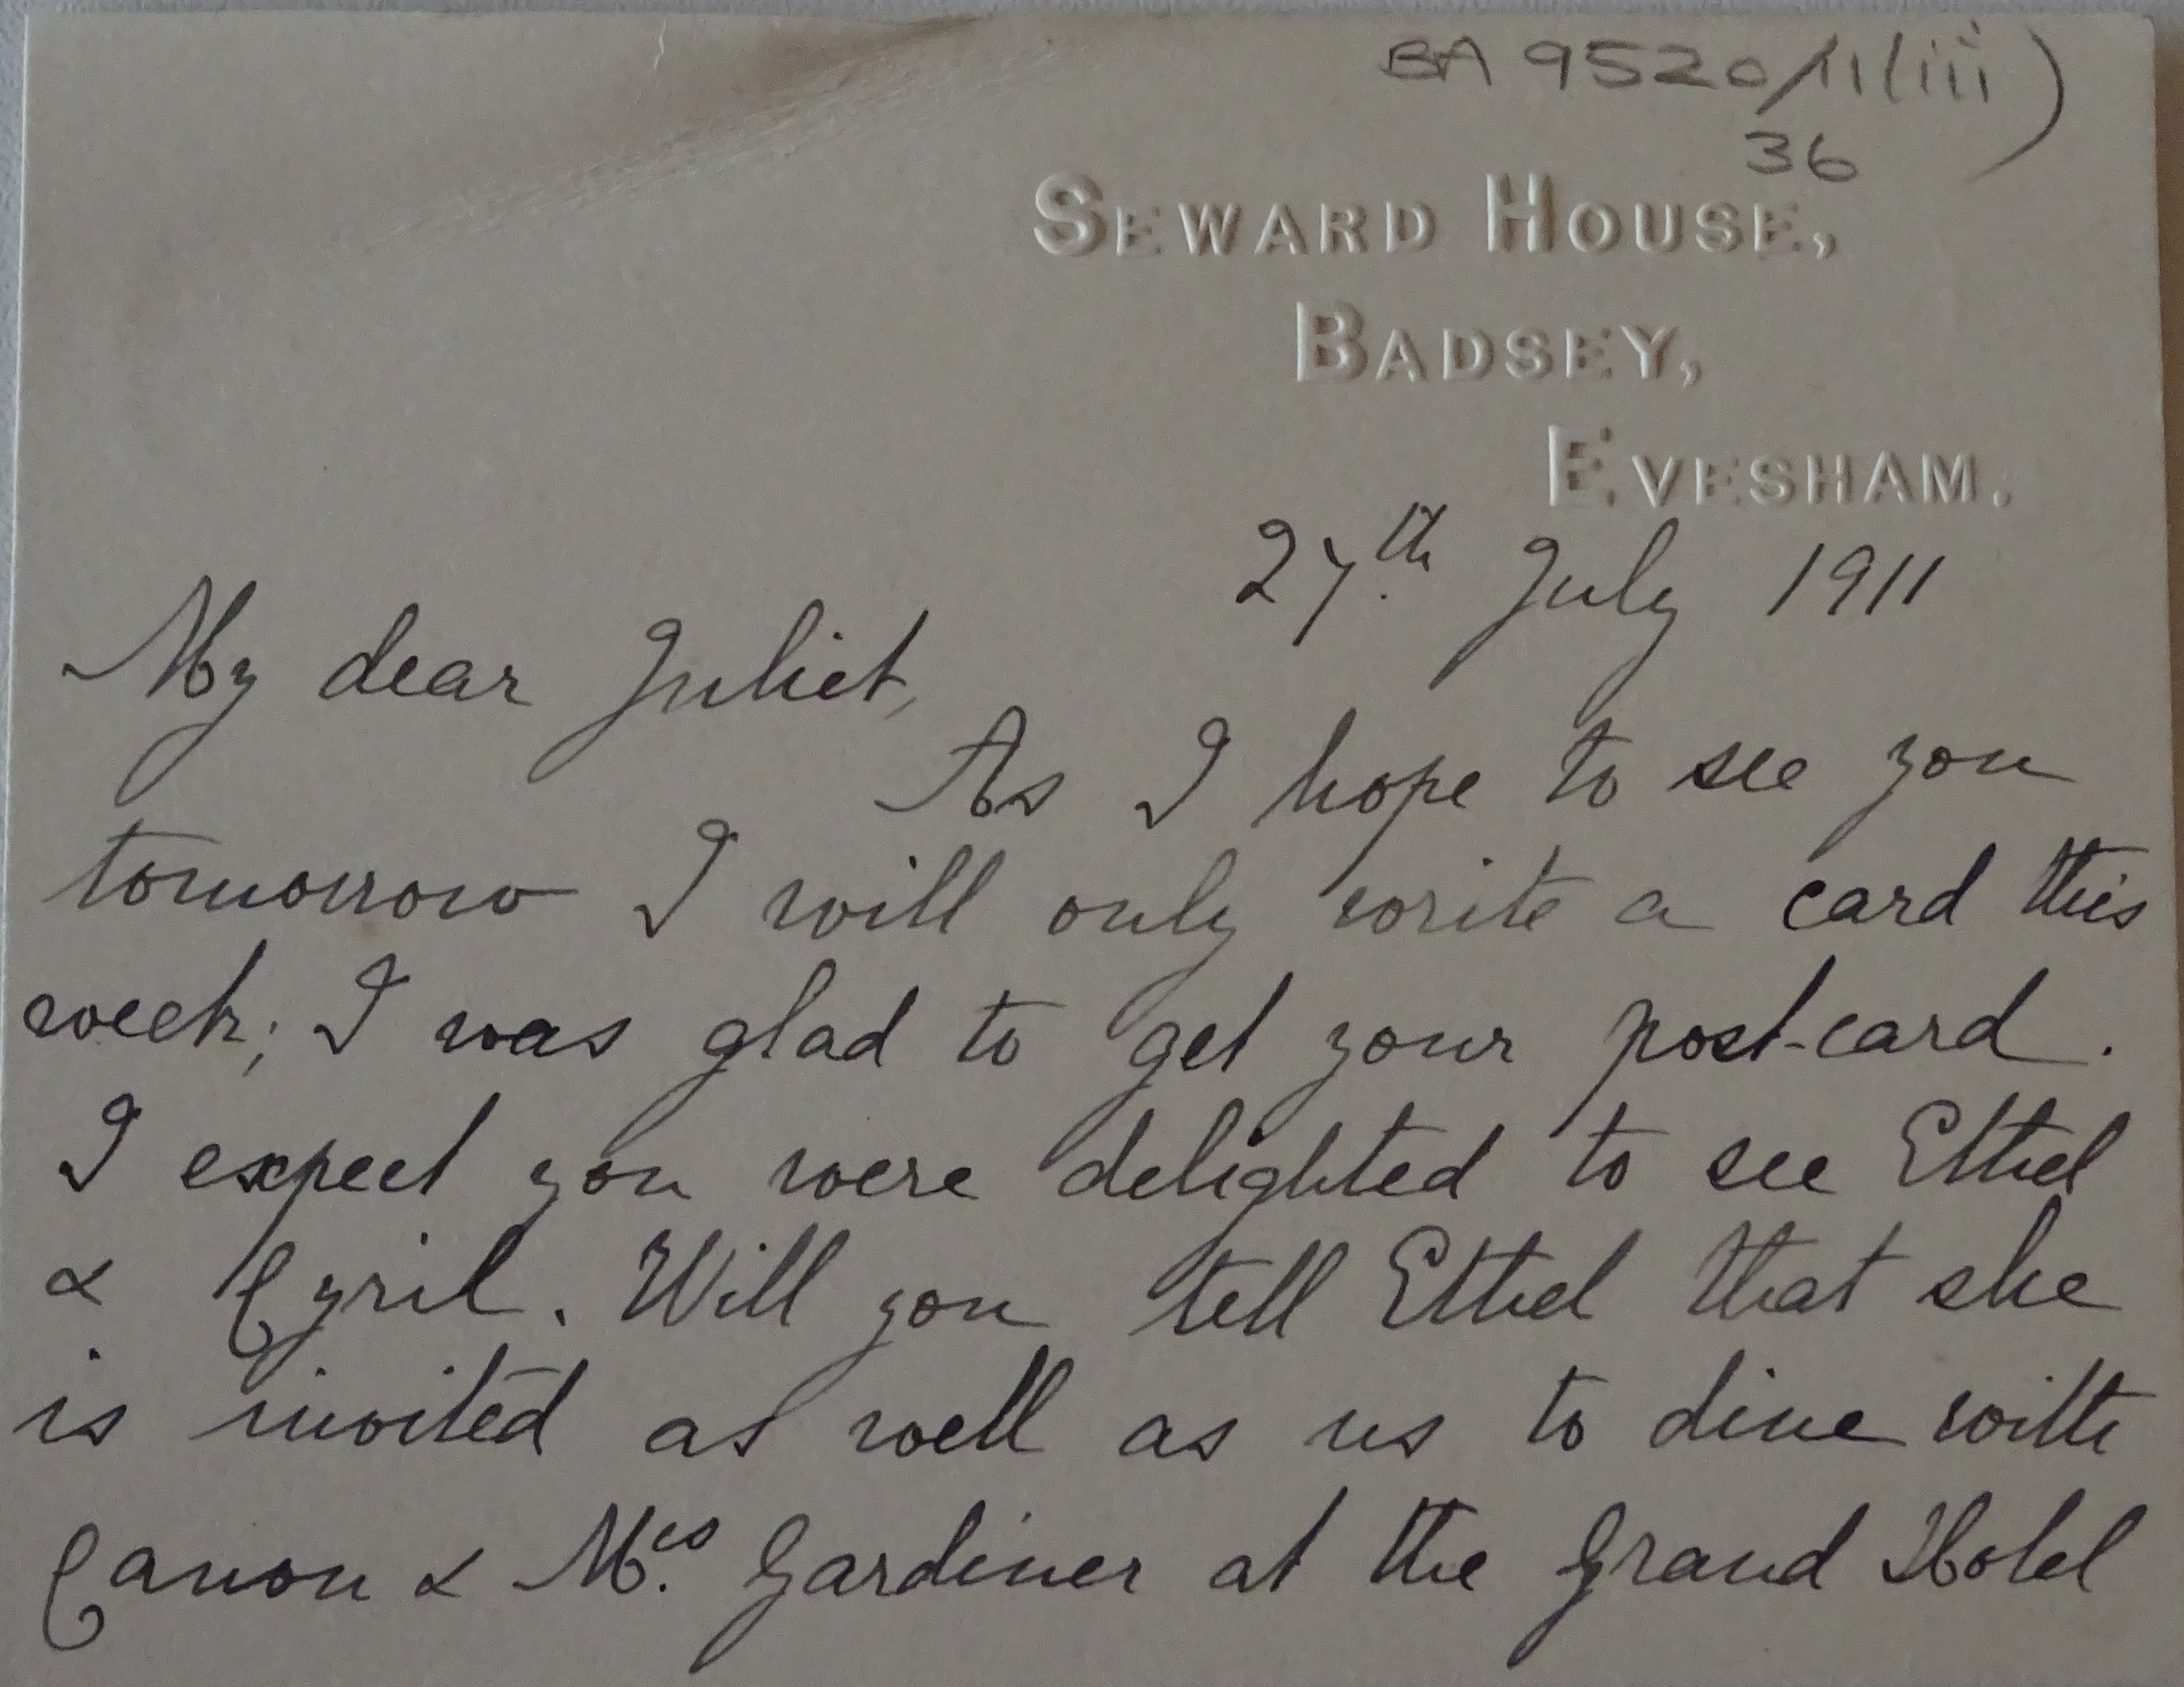 BA 9520/11(iii)
36
SEWARD HOUSE,
BADSEY,
EVESHAM.
27th July 1911
My dear Juliet,
As I hope to see you
tomorrow I will only write a card this
week; I was glad to get your post-card.
I expect you were delighted to see Ethel
& Cyril. Will you tell Ethel that she
is invited as well as us to dine with
Canon & Mrs. Gardiner at the Grand Hotel